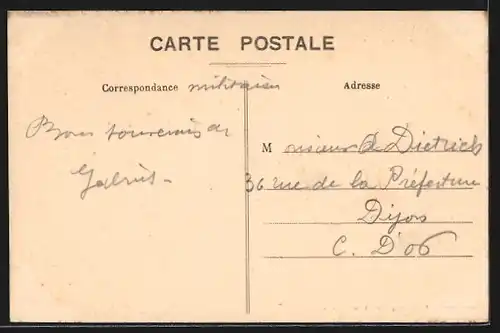 CARTE POSTALE
Correspondance militaire
Adresse
Bons souvenirs de
Gabriel
Monsieur A Dietrich
36 rue de la Préfecture
Dijon
C. D'Or